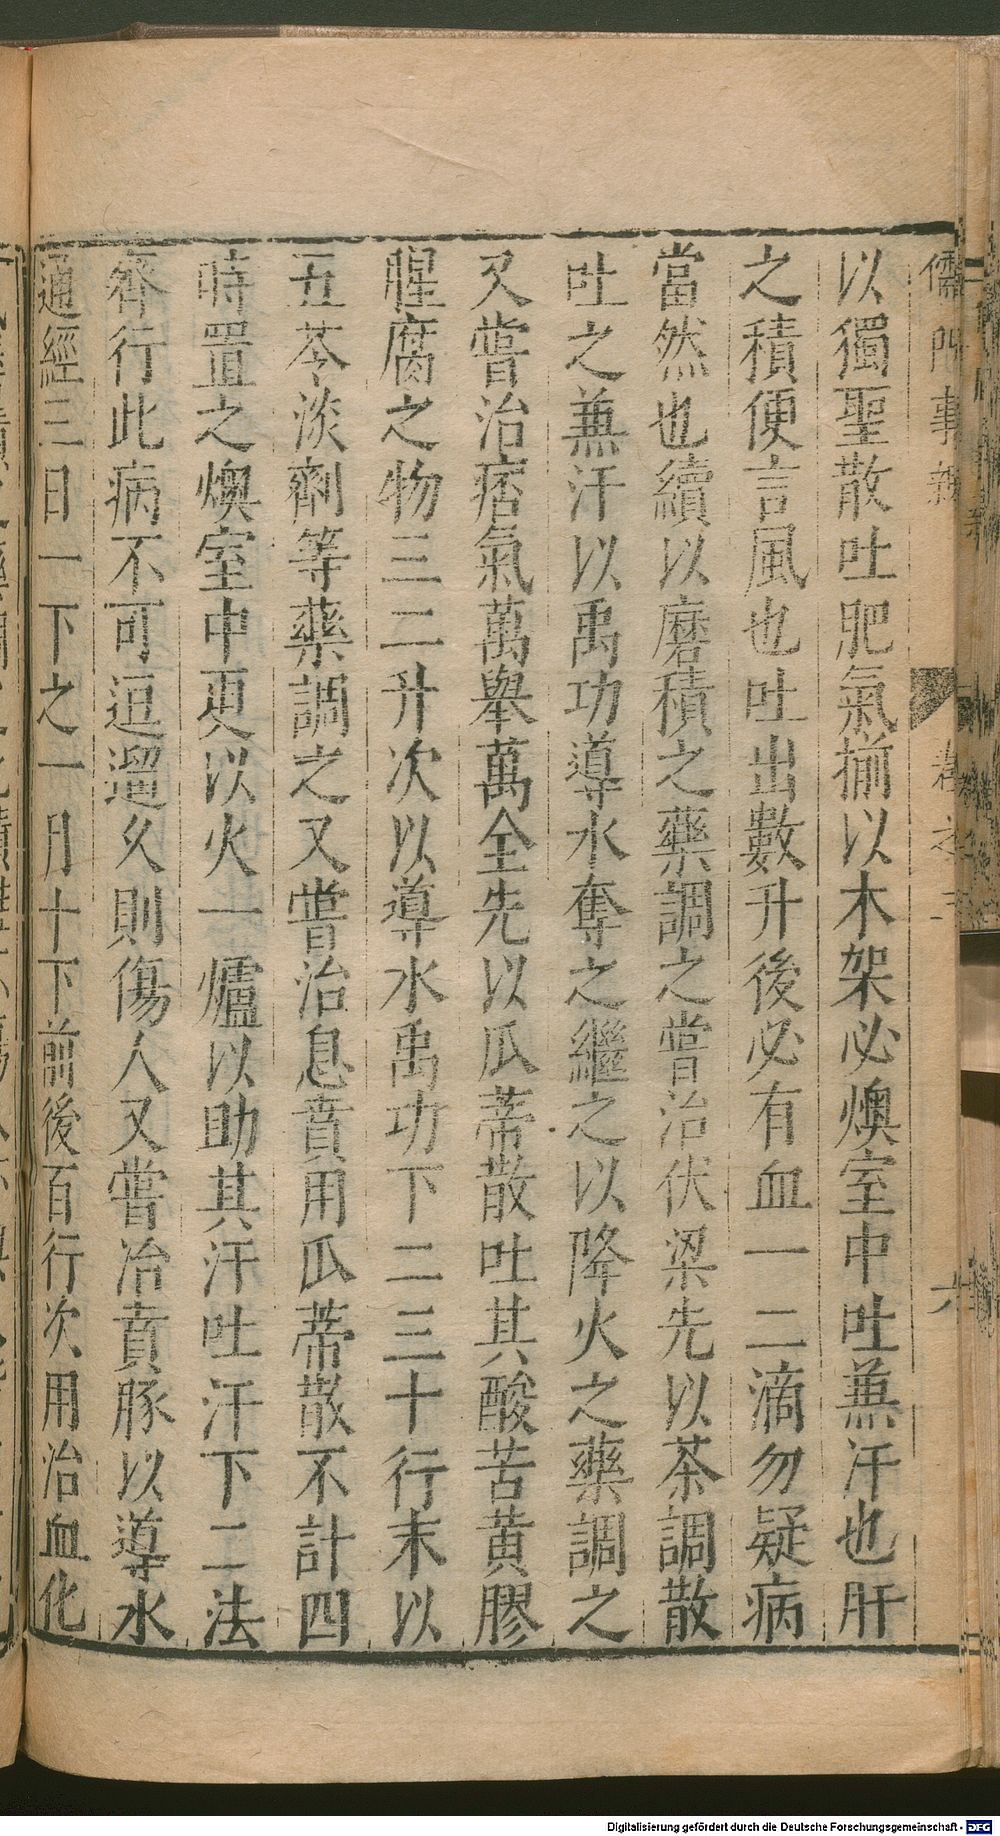 儒門事親 卷之三 六
以獨聖散吐肥氣揃以木架必燠室中吐兼汗也肝
之積便言風也吐出數升後必有血一二滴勿疑病
當然也續以磨積之藥調之嘗治伏梁先以茶調散
吐之兼汗以禹功導水奪之繼之以降火之藥調之
又嘗治痞氣萬舉萬全先以瓜蒂散吐其酸苦黃膠
腥腐之物三二升次以導水禹功下二三十行末以
五苓淡劑等藥調之又嘗治息賁用瓜蒂散不計四
時置之燠室中更以火一爐以助其汗吐汗下二法
齊行此病不可逗遛久則傷人又嘗冶賁豚以導水
通經三日一下之一月十下前後百行次用治血化
Digitalisierung gefördert durch die Deutsche Forschungsgemeinschaft - DFG